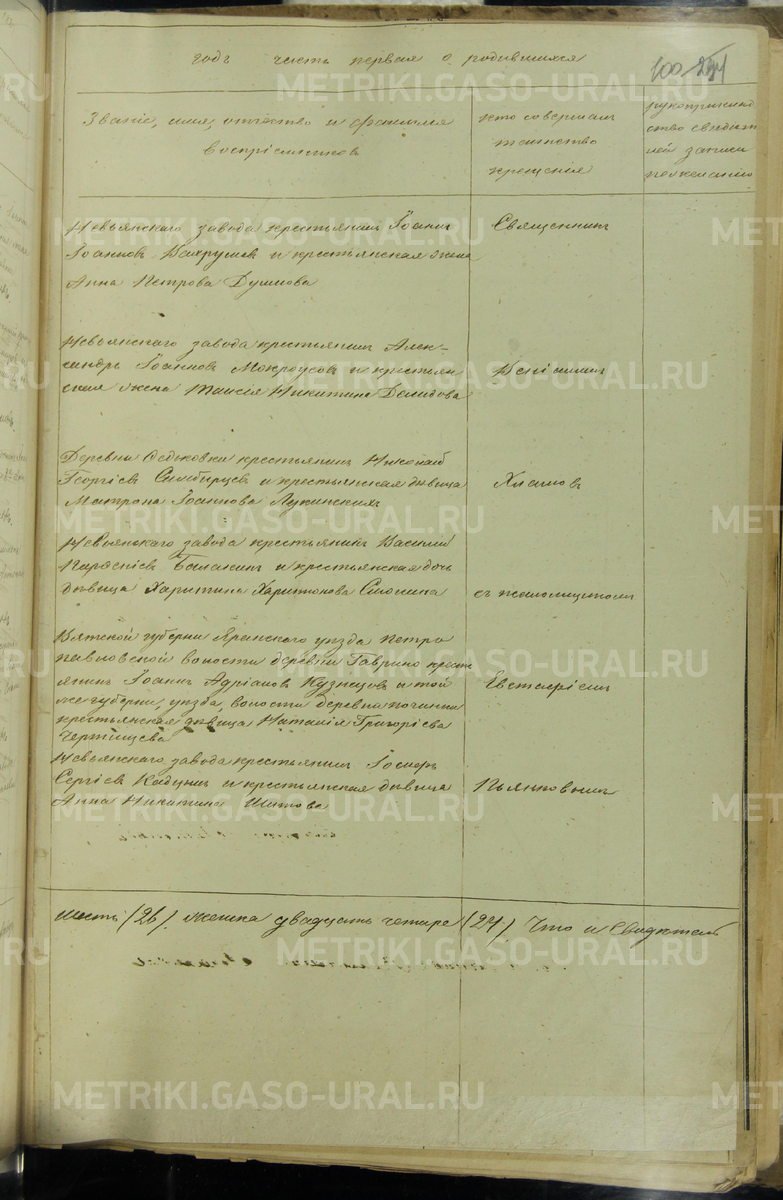 годъ часть первая о родившихся
100
Званіе, имя, отчество и фамилія
воспріемниковъ
кто совершалъ
таинство
крещенія
рукоприклад
ство свидѣт
лей записи
по желанію
Невьянскаго завода крестьянинъ Іоаннъ
Іоанновъ Вахрушевъ и крестьянская жена
Анна Петрова Душнова
Священникъ
Невьянскаго завода крестьянинъ Алек-
сандръ Іоанновъ Мокроусовъ и крестьян
ская жена Таисія Никитина Демидова
Веніаминъ
Деревни Федьковки крестьянинъ Николай
Георгіевъ Симбирцевъ и крестьянская дѣвица
Матрона Іоаннова Лукинскихъ
Хламовъ
Невьянскаго завода крестьянинъ Василій
Балакинъ и крестьянская дочь
дѣвица Харитина Харитонова
съ псаломщикомъ
Вятской губерніи Яранскаго уѣзда Петро
павловской волости деревни Гаврино кресть
янинъ Іоаннъ Адріановъ Кузнецовъ и той
же губерніи, уѣзда, волости деревни починка
крестьянская дѣвица Наталія Григоріева
Чертищева
Евстафіемъ
Невьянскаго завода крестьянинъ Іосифъ
Сергіевъ Кадцинъ и крестьянская дѣвица
Анна Никитина Шитова
Пьянковымъ
шесть (26), женска двадцать четыре (24). Что и свидѣтель
METRIKI.GASO-URAL.RU
METRIKI.GASO-URAL.RU
METRIKI.GASO-URAL.RU
METRIKI.GASO-URAL.RU
METRIKI.GASO-URAL.RU
METRIKI.GASO-URAL.RU
METRIKI.GASO-URAL.RU
METRIKI.GASO-URAL.RU